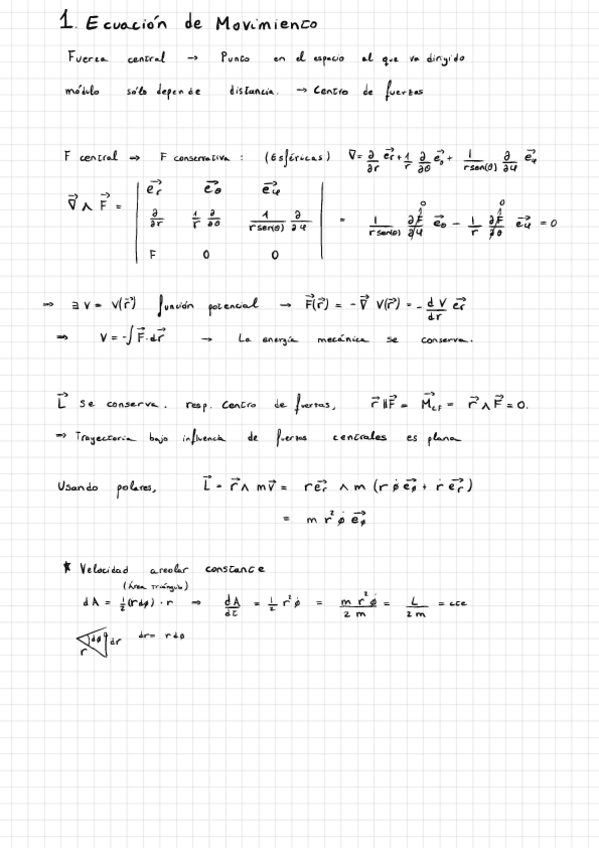 1. Ecuación de Movimiento
Fuerza central → Punto en el espacio al que va dirigido
módulo sólo depende distancia. → Centro de fuerzas
F central → F conservativa : (Esféricas) ∇ = ∂/∂r e⃗r + 1/r ∂/∂θ e⃗θ + 1/(r sen(θ)) ∂/∂φ e⃗φ
∇⃗ ∧ F⃗ = | e⃗r e⃗θ e⃗φ |
| ∂/∂r 1/r ∂/∂θ 1/(r sen(θ)) ∂/∂φ | = 1/(r sen(θ)) ∂F/∂φ e⃗θ − 1/r ∂F/∂θ e⃗φ = 0
| F 0 0 |
⇒ ∃ V = V(r⃗) función potencial → F⃗(r⃗) = −∇⃗ V(r⃗) = − dV/dr e⃗r
⇒ V = −∫ F⃗·dr⃗ → La energía mecánica se conserva.
L⃗ se conserva. resp. Centro de fuerzas, r⃗ ∥ F⃗ = M⃗CF = r⃗ ∧ F⃗ = 0.
⇒ Trayectoria bajo influencia de fuerzas centrales es plana
Usando polares, L⃗ = r⃗ ∧ m v⃗ = r e⃗r ∧ m (r φ̇ e⃗φ + ṙ e⃗r)
= m r² φ̇ e⃗φ
* Velocidad areolar constante
(Área Triángulo)
dA = ½(rdφ) · r ⇒ dA/dt = ½ r² φ̇ = m r² φ̇ / 2m = L/2m = cte
r dφ dr dr = rdθ